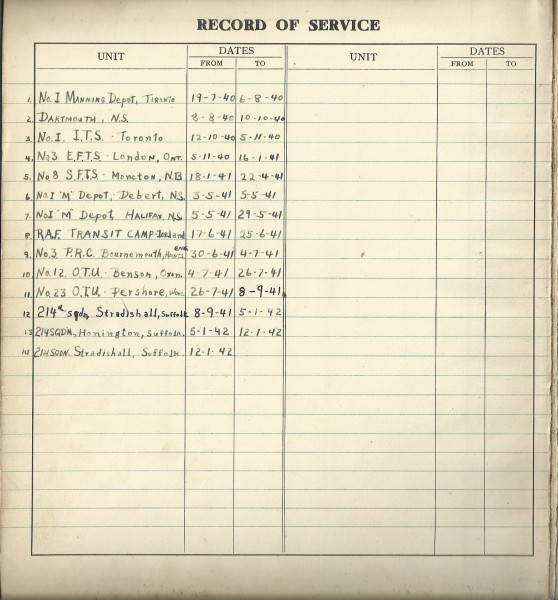 RECORD OF SERVICE
UNIT DATES UNIT DATES
FROM TO FROM TO
1. No. 1 MANNING DEPOT, TORONTO 19-7-40 6-8-40
2. DARTMOUTH, N.S. 8-8-40 10-10-40
3. No. 1. I.T.S. - Toronto 12-10-40 5-11-40
4. No 3 E.F.T.S. - LONDON, ONT. 5-11-40 16-1-41
5. No 8 S.F.T.S. - MONCTON, N.B 18-1-41 22-4-41
6. No. 1 "M" DEPOT, DEBERT, N.S. 3-5-41 5-5-41
7. No 1 "M" DEPOT HALIFAX, N.S. 5-5-41 29-5-41
8. R.A.F. TRANSIT CAMP-Iceland 17-6-41 25-6-41
9. No. 3 P.R.C. BOURNEMOUTH, HANTS ENG 30-6-41 4-7-41
10. No. 12 O.T.U. - Benson, Oxon. 4-7-41 26-7-41
11. No. 23 O.T.U. - Pershore, Worc. 26-7-41 8-9-41
12 214th sqdn, Stradishall, Suffolk 8-9-41 5-1-42
13 214 SQDN, Honington, Suffolk. 5-1-42 12-1-42
14 214 SQDN. Stradishall, Suffolk 12-1-42